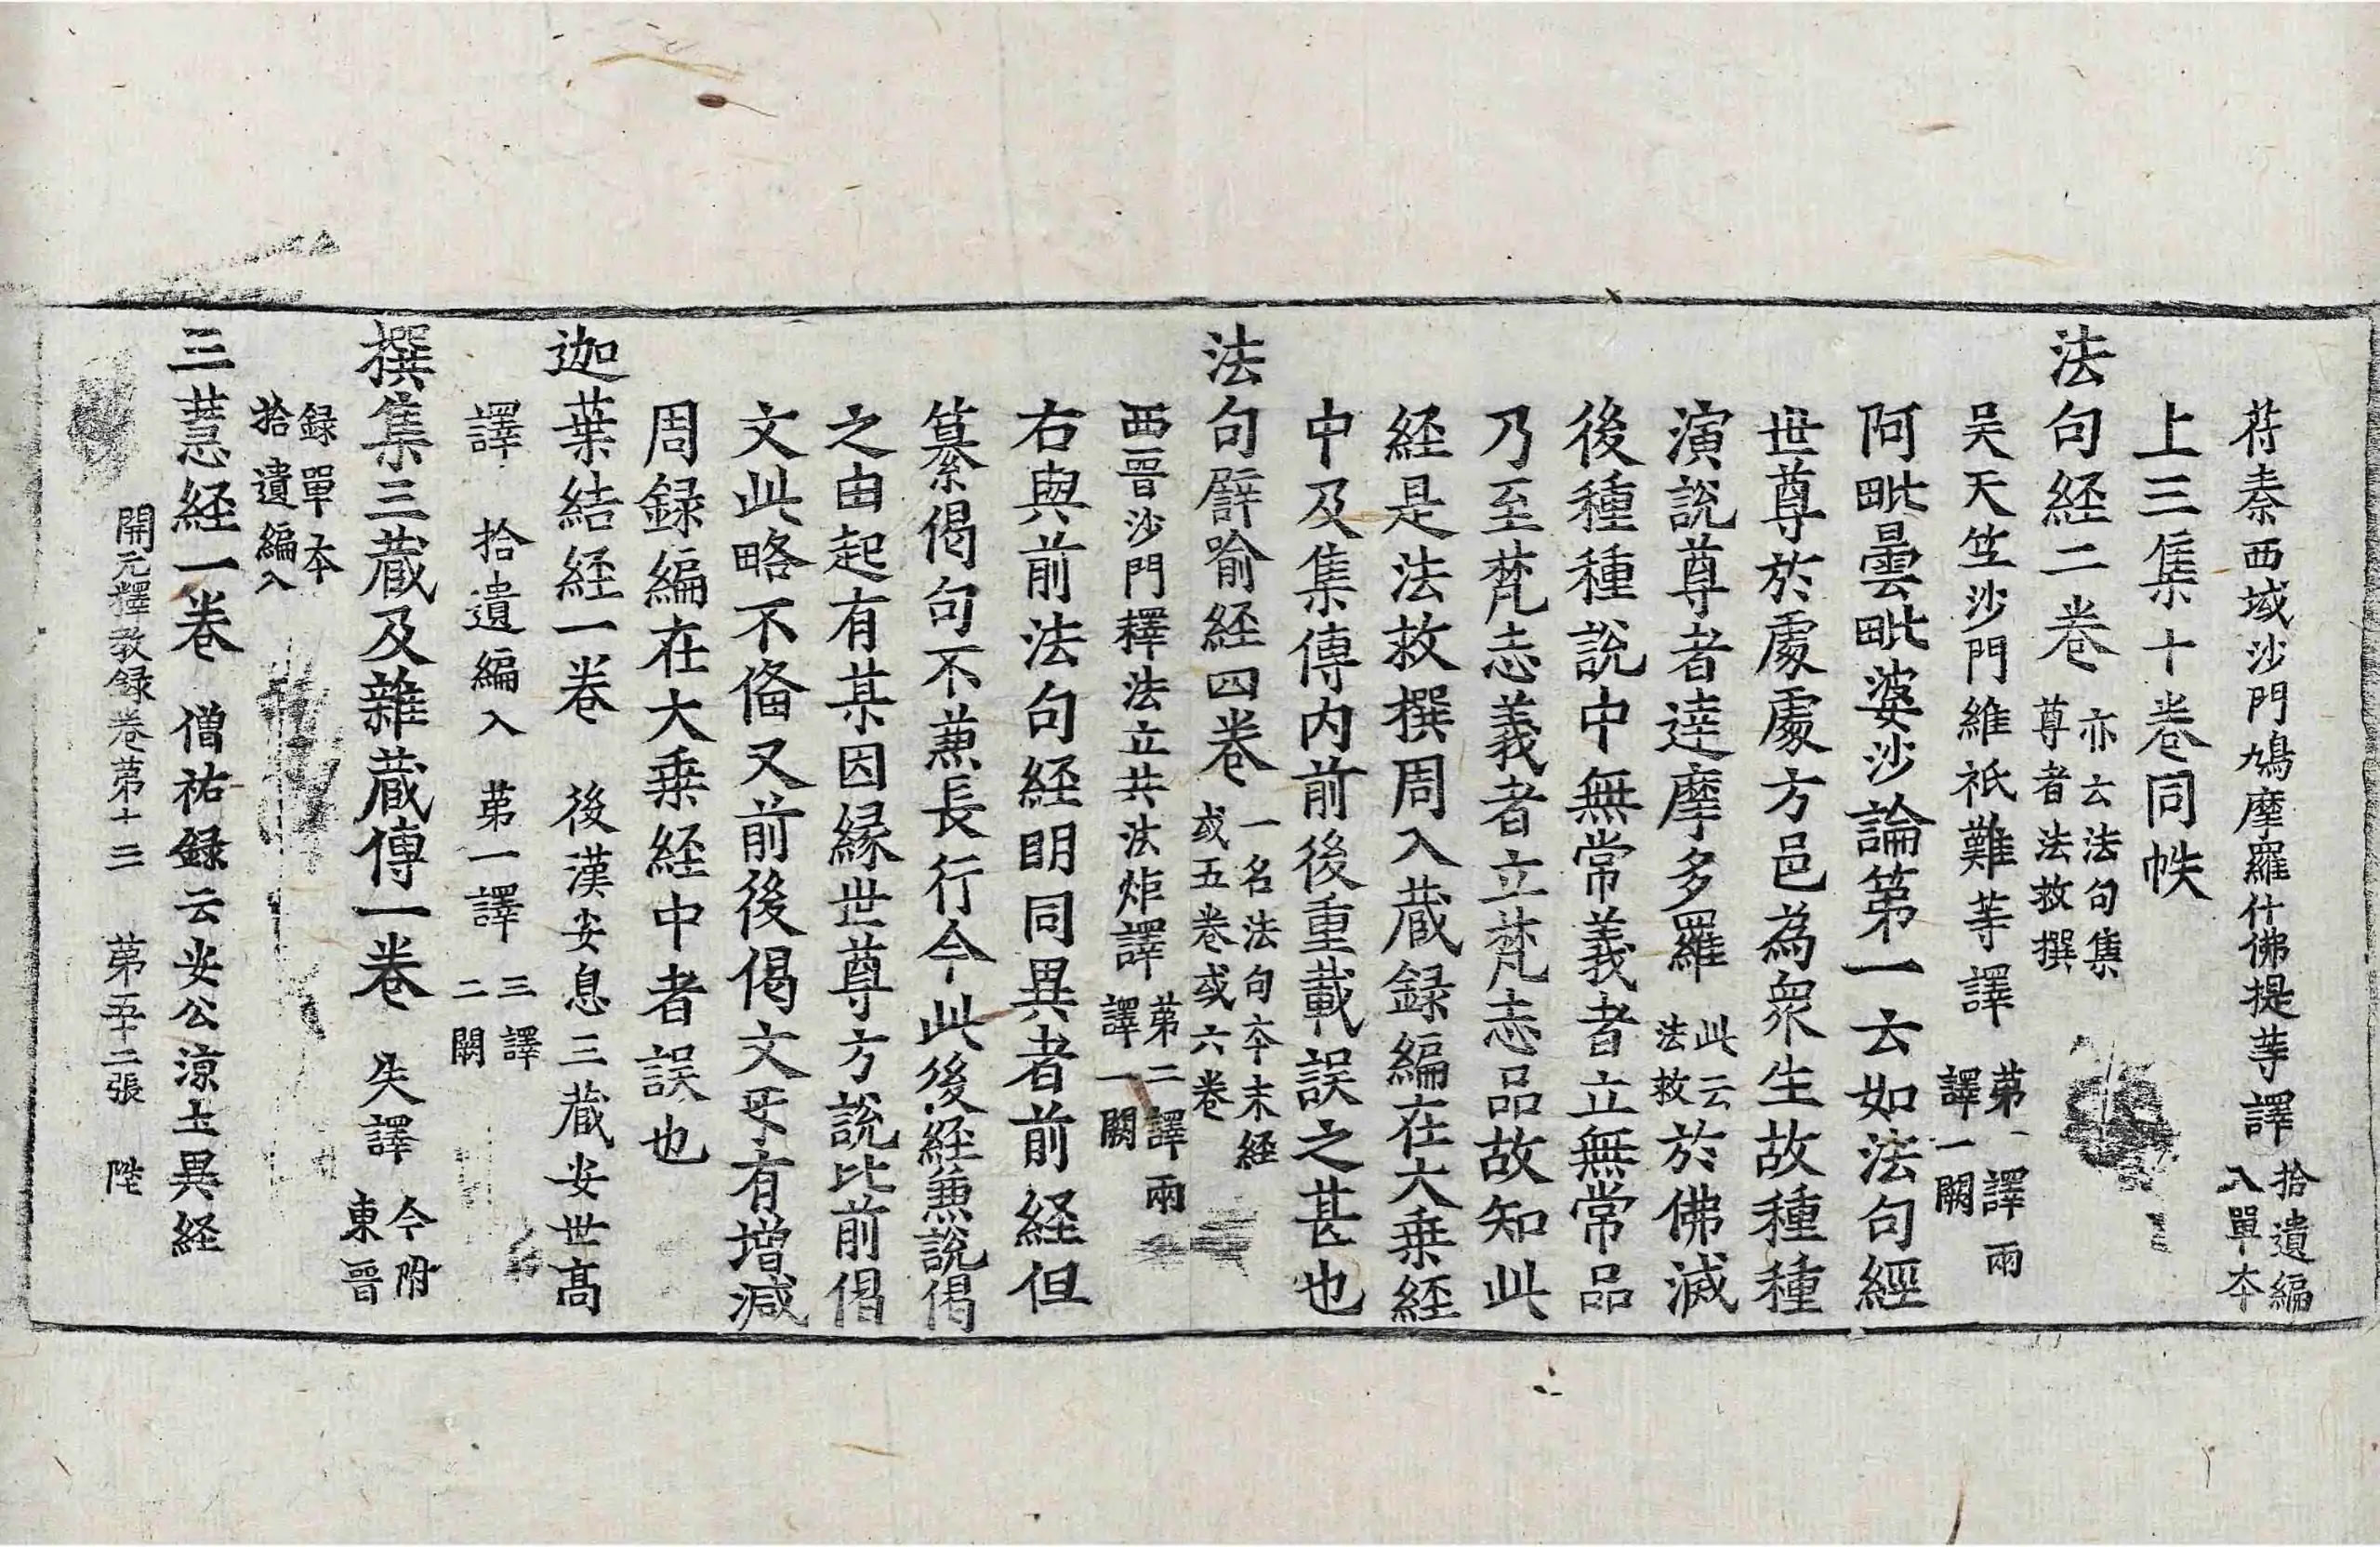 苻秦西域沙門鳩摩羅什佛提䓁譯拾遺編入單本
上三集十卷同帙
法句経二卷亦云法句集尊者法救撰
吴天竺沙門維祇難䓁譯苐一譯兩譯一闕
阿毗曇毗婆沙論第一云如法句經
世尊於處處方邑為衆生故種種
演說尊者達摩多羅此云法救於佛滅
後種種說中無常義者立無常品
乃至梵志義者立梵志品故知此
経是法救撰周入蔵録編在大乗経
中及集傳内前後重載誤之甚也
法句譬喻経四卷一名法句本末経或五卷或六卷
西晉沙門釋法立共法炬譯苐二譯兩譯一闕
右與前法句経明同異者前経但
纂偈句不兼長行今此後経兼說偈
之由起有某因緣世尊方說比前偈
文此略不俻又前後偈文㸦有增減
周録編在大乗経中者誤也
迦葉結経一卷後漢安息三蔵安世髙
譯拾遺編入苐一譯三譯二闕
撰集三蔵及雜蔵傳一卷失譯今附東晉
録單本拾遺編入
三慧経一卷僧祐録云安公涼土異経
開元釋教録卷苐十三 苐五十二張 陞